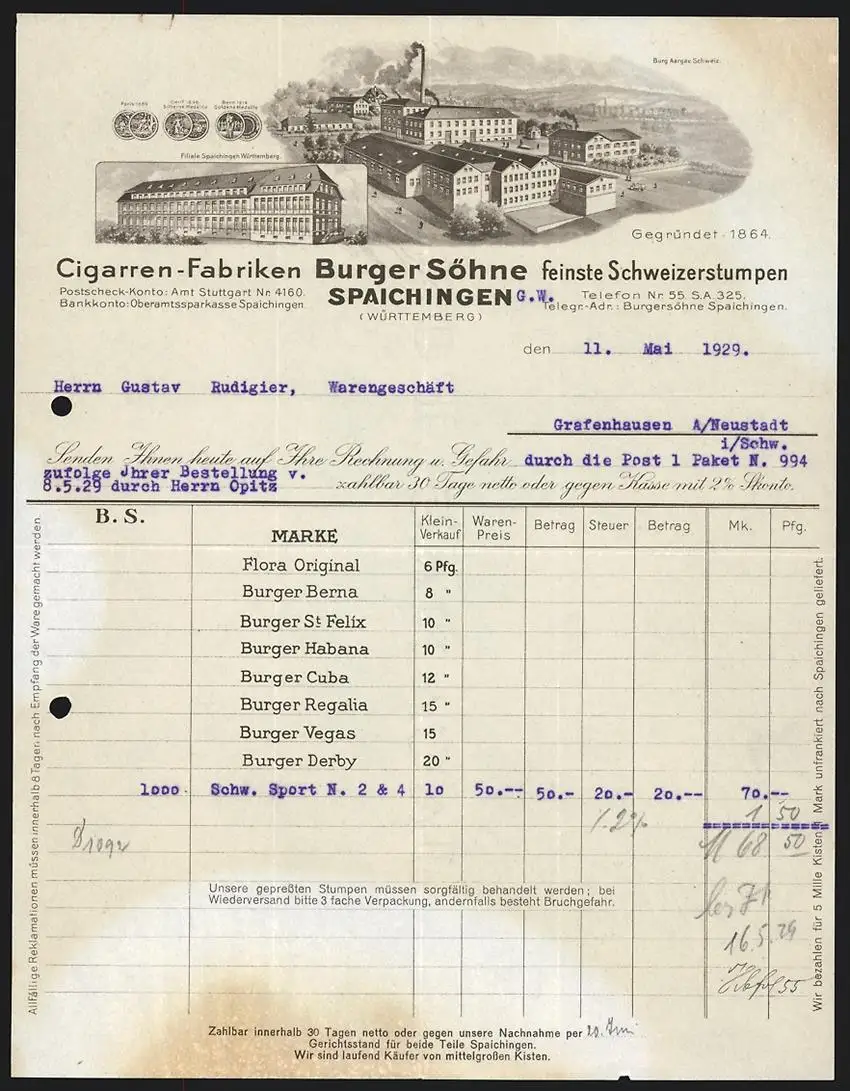 Burg Aargau Schweiz.
Paris 1889 Genf 1896 Silberne Medaille Bern 1914 Goldene Medaille
Filiale Spaichingen Württemberg.
Gegründet 1864.
Cigarren-Fabriken Burger Söhne feinste Schweizerstumpen
Postscheck-Konto: Amt Stuttgart Nr. 4160. SPAICHINGEN G.W. Telefon Nr. 55. S.A. 325.
Bankkonto: Oberamtssparkasse Spaichingen. Telegr.-Adr.: Burgersöhne Spaichingen.
(WÜRTTEMBERG)
den 11. Mai 1929.
Herrn Gustav Rudigier, Warengeschäft
Grafenhausen A/Neustadt
i/Schw.
Senden Ihnen heute auf Ihre Rechnung u. Gefahr durch die Post 1 Paket N. 994
zufolge Jhrer Bestellung v.
8.5.29 durch Herrn Opitz zahlbar 30 Tage netto oder gegen Kasse mit 2% Skonto.
B. S. MARKE Klein-Verkauf Waren-Preis Betrag Steuer Betrag Mk. Pfg.
Flora Original 6 Pfg.
Burger Berna 8 "
Burger St Felix 10 "
Burger Habana 10 "
Burger Cuba 12 "
Burger Regalia 15 "
Burger Vegas 15
Burger Derby 20 "
1000 Schw. Sport N. 2 & 4 10 50.-- 50.- 20.- 20.-- 70.--
2% 1 50
D1092 M 68 50
Unsere gepreßten Stumpen müssen sorgfältig behandelt werden; bei
Wiederversand bitte 3 fache Verpackung, andernfalls besteht Bruchgefahr.
16.5.29
55
Zahlbar innerhalb 30 Tagen netto oder gegen unsere Nachnahme per 20. Juni
Gerichtsstand für beide Teile Spaichingen.
Wir sind laufend Käufer von mittelgroßen Kisten.
Allfällige Reklamationen müssen innerhalb 8 Tagen nach Empfang der Ware gemacht werden.
Wir bezahlen für 5 Mille Kisten 1 Mark unfrankiert nach Spaichingen geliefert.